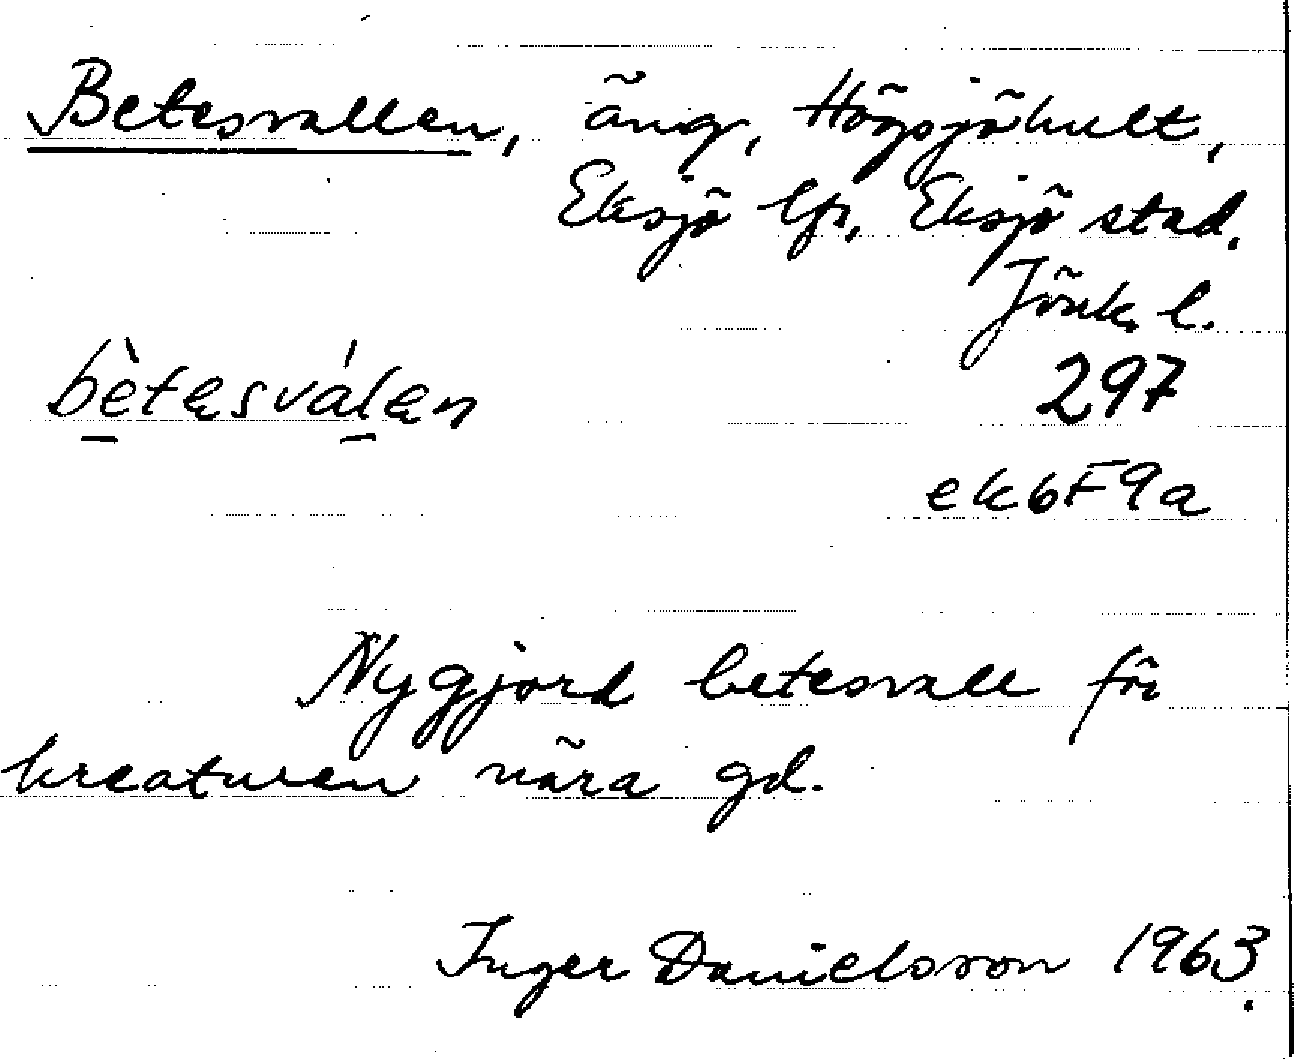 Betesvallen, äng, Högsjöhult,
Eksjö lfs, Eksjö stad.
Jönk. l.
bètesválen 297
ek6F9a
Nygjord betesvall för
kreaturen nära gd.
Inger Danielsson 1963.